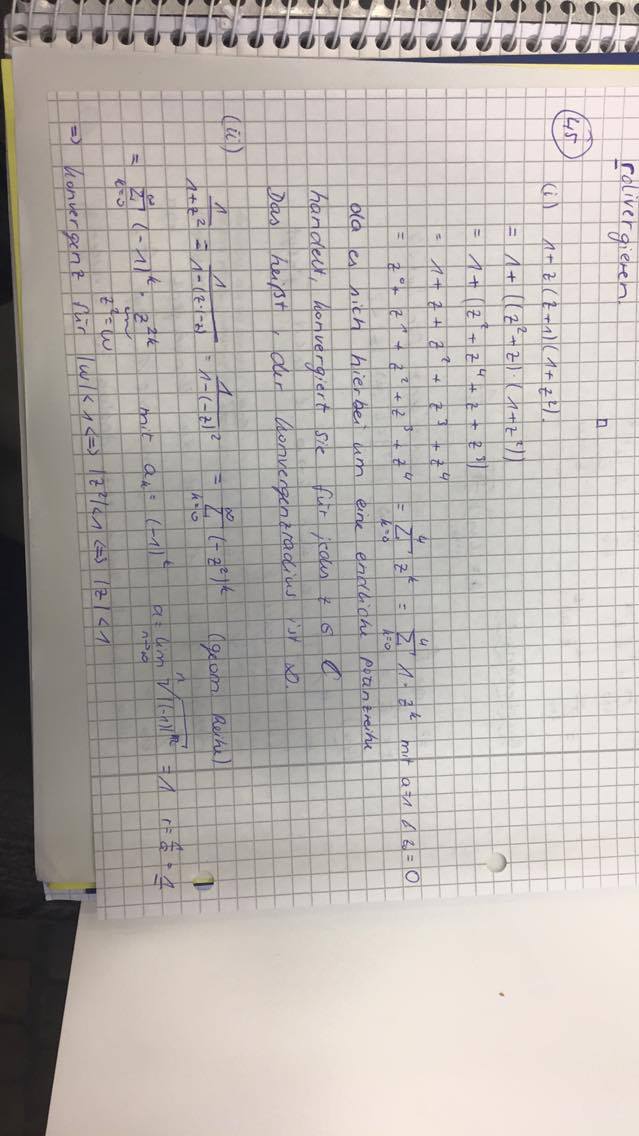 divergieren.
□
45
(i) 1+z(z+1)(1+z²).
= 1+((z²+z)·(1+z²))
= 1+(z²+z⁴+z+z³)
= 1+z+z²+z³+z⁴
= z⁰+z¹+z²+z³+z⁴ = ∑_{k=0}^{4} z^k = ∑_{k=0}^{4} 1·z^k mit a=1 & z₀=0
da es sich hierbei um eine endliche potenzreihe
handelt, konvergiert sie für jedes z ∈ ℂ
Das heißt, der Konvergenzradius ist ∞.
(ii) 1/(1+z²) = 1/(1-(z·(-z))) = 1/(1-(-z)²) = ∑_{k=0}^{∞} (-z²)^k (geom. Reihe)
= ∑_{k=0}^{∞} (-1)^k · z^{2k} mit a_k = (-1)^k a = lim_{n→∞} ⁿ√|(-1)|ⁿ = 1 r = 1/a = 1
z²=w
=> Konvergenz für |w|<1 <=> |z²|<1 <=> |z|<1